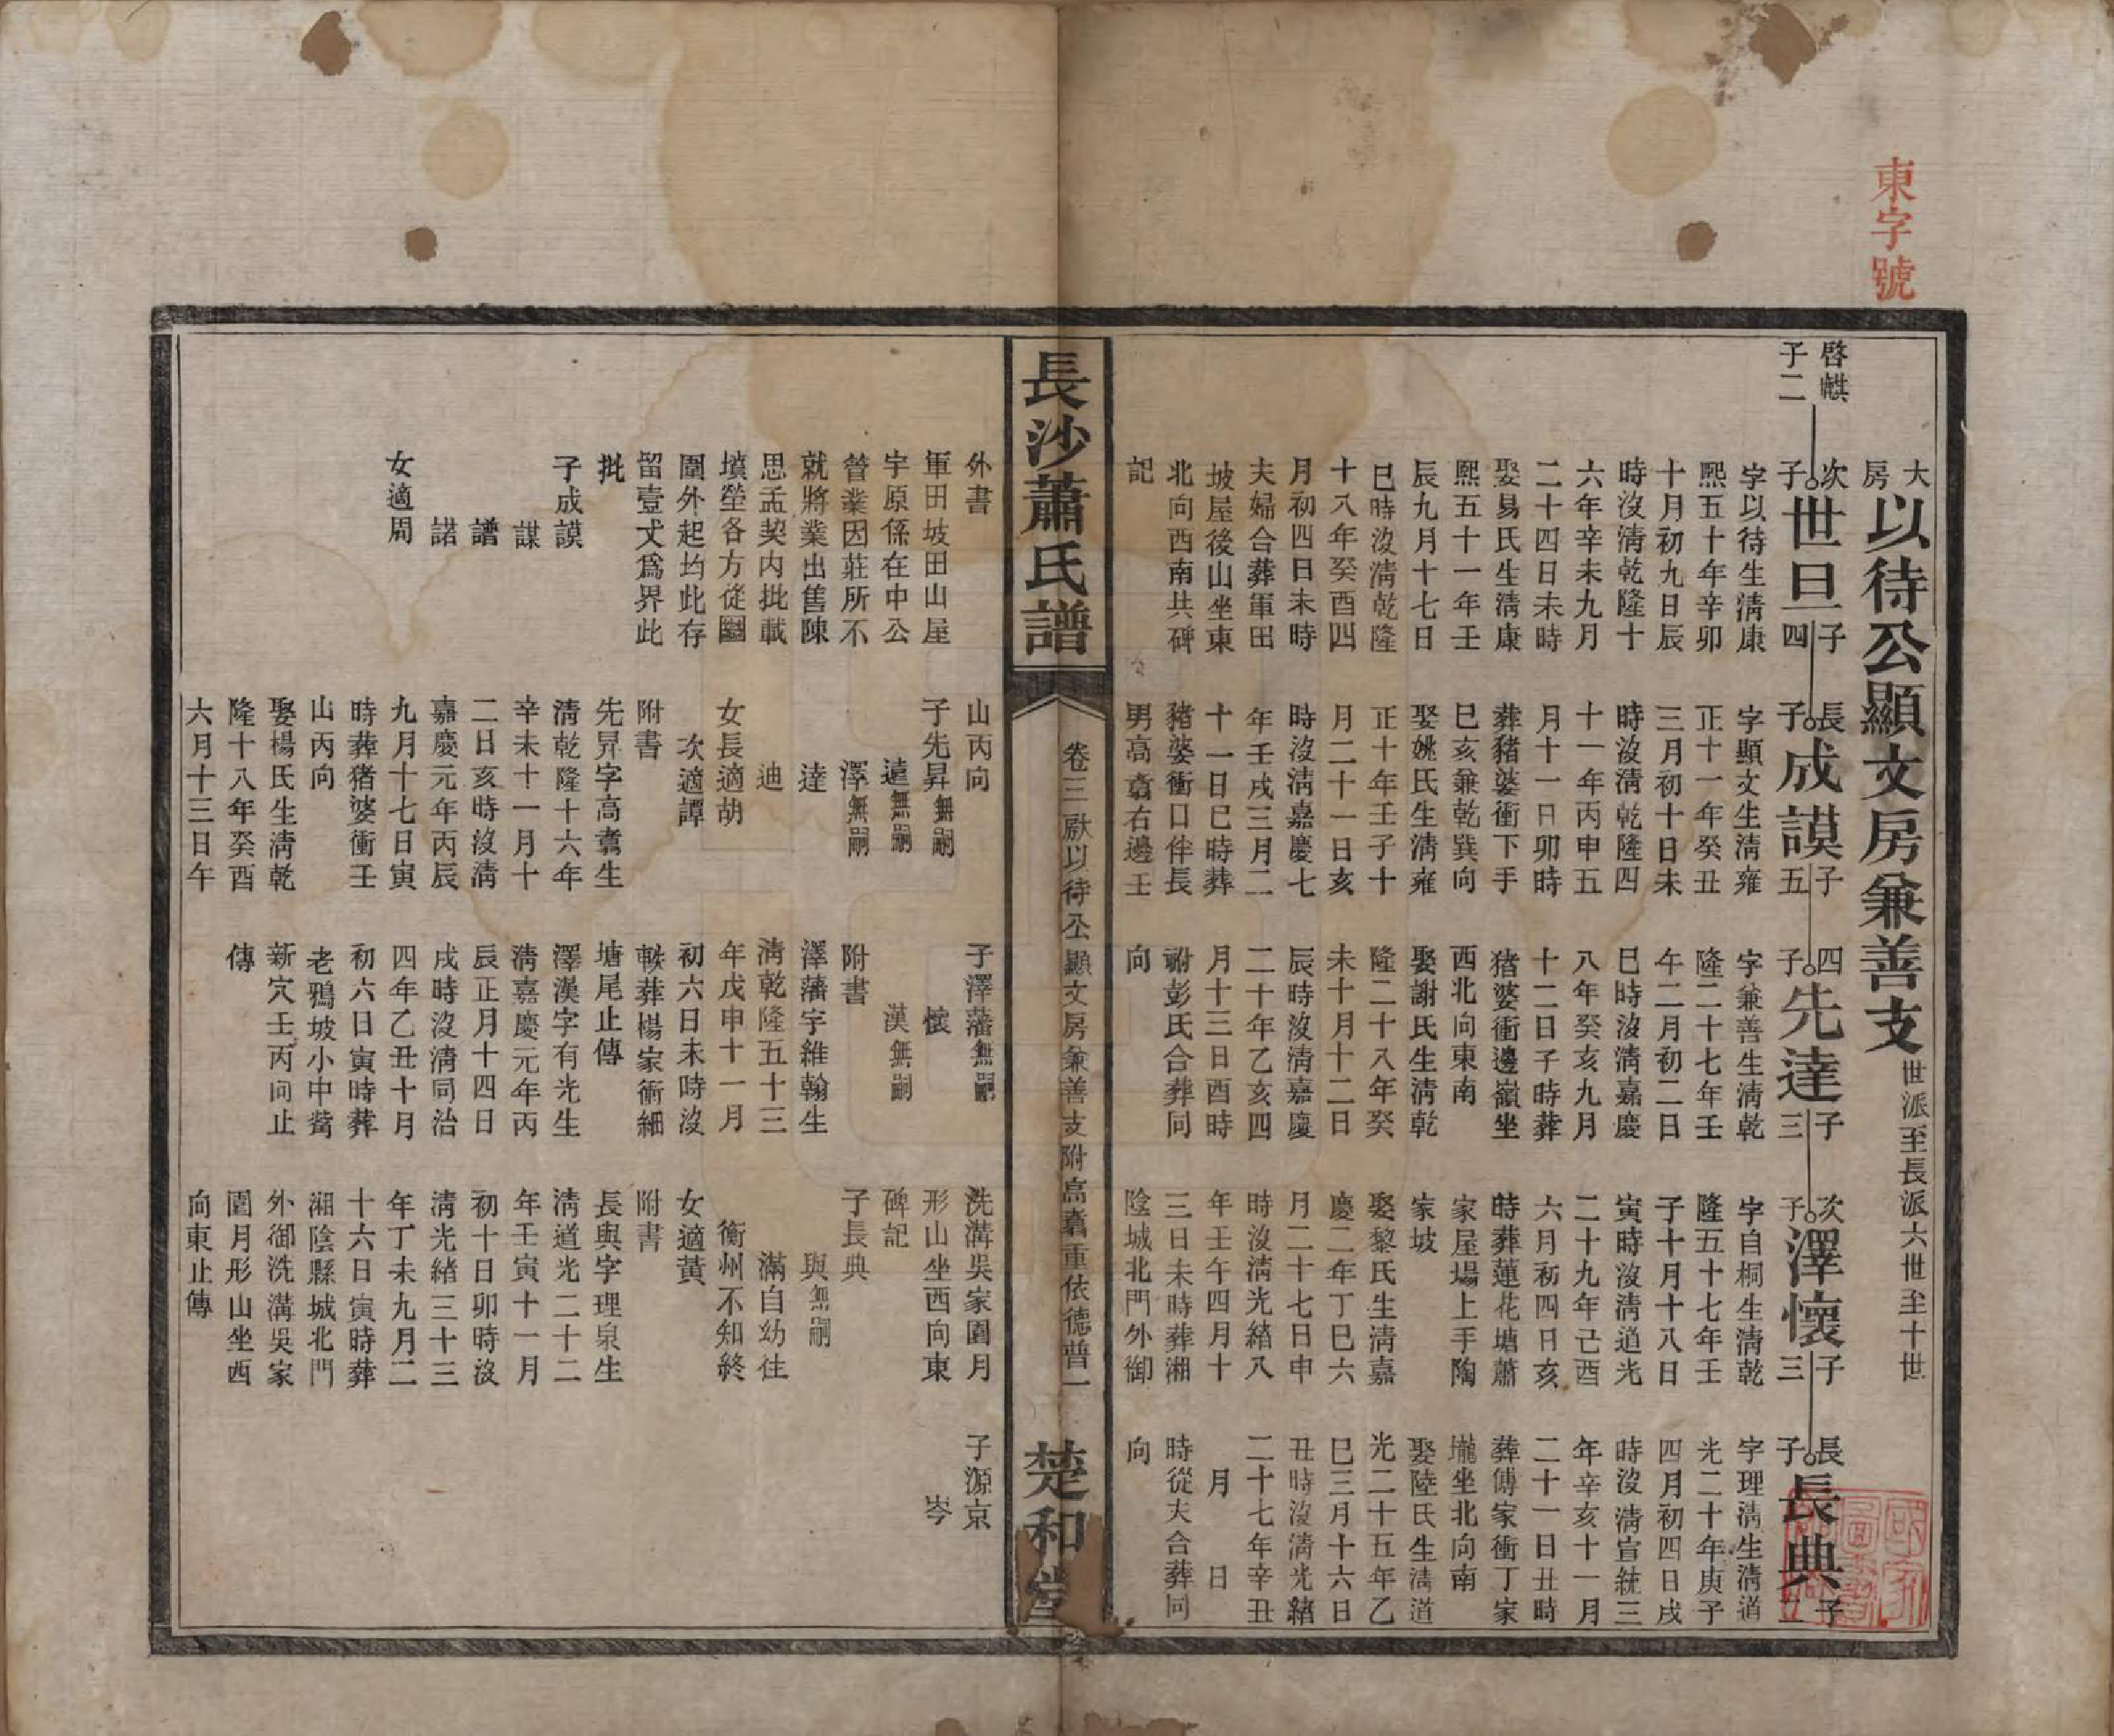 東字號
大房以待公顯文房兼善支世派至長派六世至十世
啓帺子二
次子世旦子四
字以待生淸康
熙五十年辛卯
十月初九日辰
時沒淸乾隆十
六年辛未九月
二十四日未時
娶易氏生淸康
熙五十一年壬
辰九月十七日
巳時沒淸乾隆
十八年癸酉四
月初四日未時
夫婦合葬軍田
坡屋後山坐東
北向西南共碑
記
長子成謨子五
字顯文生淸雍
正十一年癸丑
三月初十日未
時沒淸乾隆四
十一年丙申五
月十一日卯時
葬豬婆衝下手
巳亥兼乾巽向
娶姚氏生淸雍
正十年壬子十
月二十一日亥
時沒淸嘉慶七
年壬戌三月二
十一日巳時葬
豬婆衝口伴長
男高翥右邊壬
四子先達子三
字兼善生淸乾
隆二十七年壬
午二月初二日
巳時沒淸嘉慶
八年癸亥九月
十二日子時葬
猪婆衝邊嶺坐
西北向東南
娶謝氏生淸乾
隆二十八年癸
未十月十二日
辰時沒淸嘉慶
二十年乙亥四
月十三日酉時
祔彭氏合葬同
向
次子澤懷子三
字自桐生淸乾
隆五十七年壬
子十月十八日
寅時沒淸道光
二十九年己酉
六月初四日亥
時葬蓮花塘蕭
家屋場上手陶
家坡
娶黎氏生淸嘉
慶二年丁巳六
月二十七日申
時沒淸光緖八
年壬午四月十
三日未時葬湘
陰城北門外御
長子長典子二
字理淸生淸道
光二十年庚子
四月初四日戌
時沒淸宣統三
年辛亥十一月
二十一日丑時
葬傅家衝丁家
壠坐北向南
娶陸氏生淸道
光二十五年乙
巳三月十六日
丑時沒淸光緖
二十七年辛丑
月 日
時從夫合葬同
向
長沙蕭氏譜
卷三厭以待公顯文房兼善支附高翥重依德普一
楚和堂
外書
軍田坡田山屋
宇原係在中公
營業因莊所不
就將業出售陳
思孟契内批載
墳塋各方從圝
圍外起均此存
留壹丈爲界此
批
子成謨
謀
譜
諾
女適周
山丙向
子先昇無嗣
遠無嗣
澤無嗣
達
迪
女長適胡
次適譚
附書
先昇字高翥生
淸乾隆十六年
辛未十一月十
二日亥時沒淸
嘉慶元年丙辰
九月十七日寅
時葬猪婆衝壬
山丙向
娶楊氏生淸乾
隆十八年癸酉
六月十三日午
子澤藩無嗣
懷
漢無嗣
附書
澤藩字維翰生
淸乾隆五十三
年戊申十一月
初六日未時沒
軼葬楊家衝細
塘尾止傳
澤漢字有光生
淸嘉慶元年丙
辰正月十四日
戌時沒淸同治
四年乙丑十月
初六日寅時葬
老鴉坡小中嘴
新穴壬丙向止
傳
洗溝吳家園月
形山坐西向東
碑記
子長典
與無嗣
滿自幼往
衡州不知終
女適黃
附書
長與字理泉生
淸道光二十二
年壬寅十一月
初十日卯時沒
淸光緖三十三
年丁未九月二
十六日寅時葬
湘陰縣城北門
外御洗溝吳家
園月形山坐西
向東止傳
子源京
岑